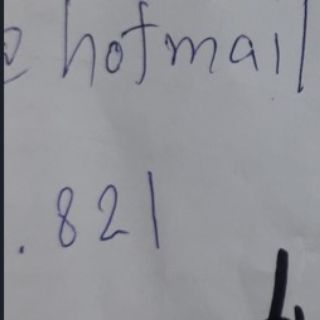 @ hotmail
.821